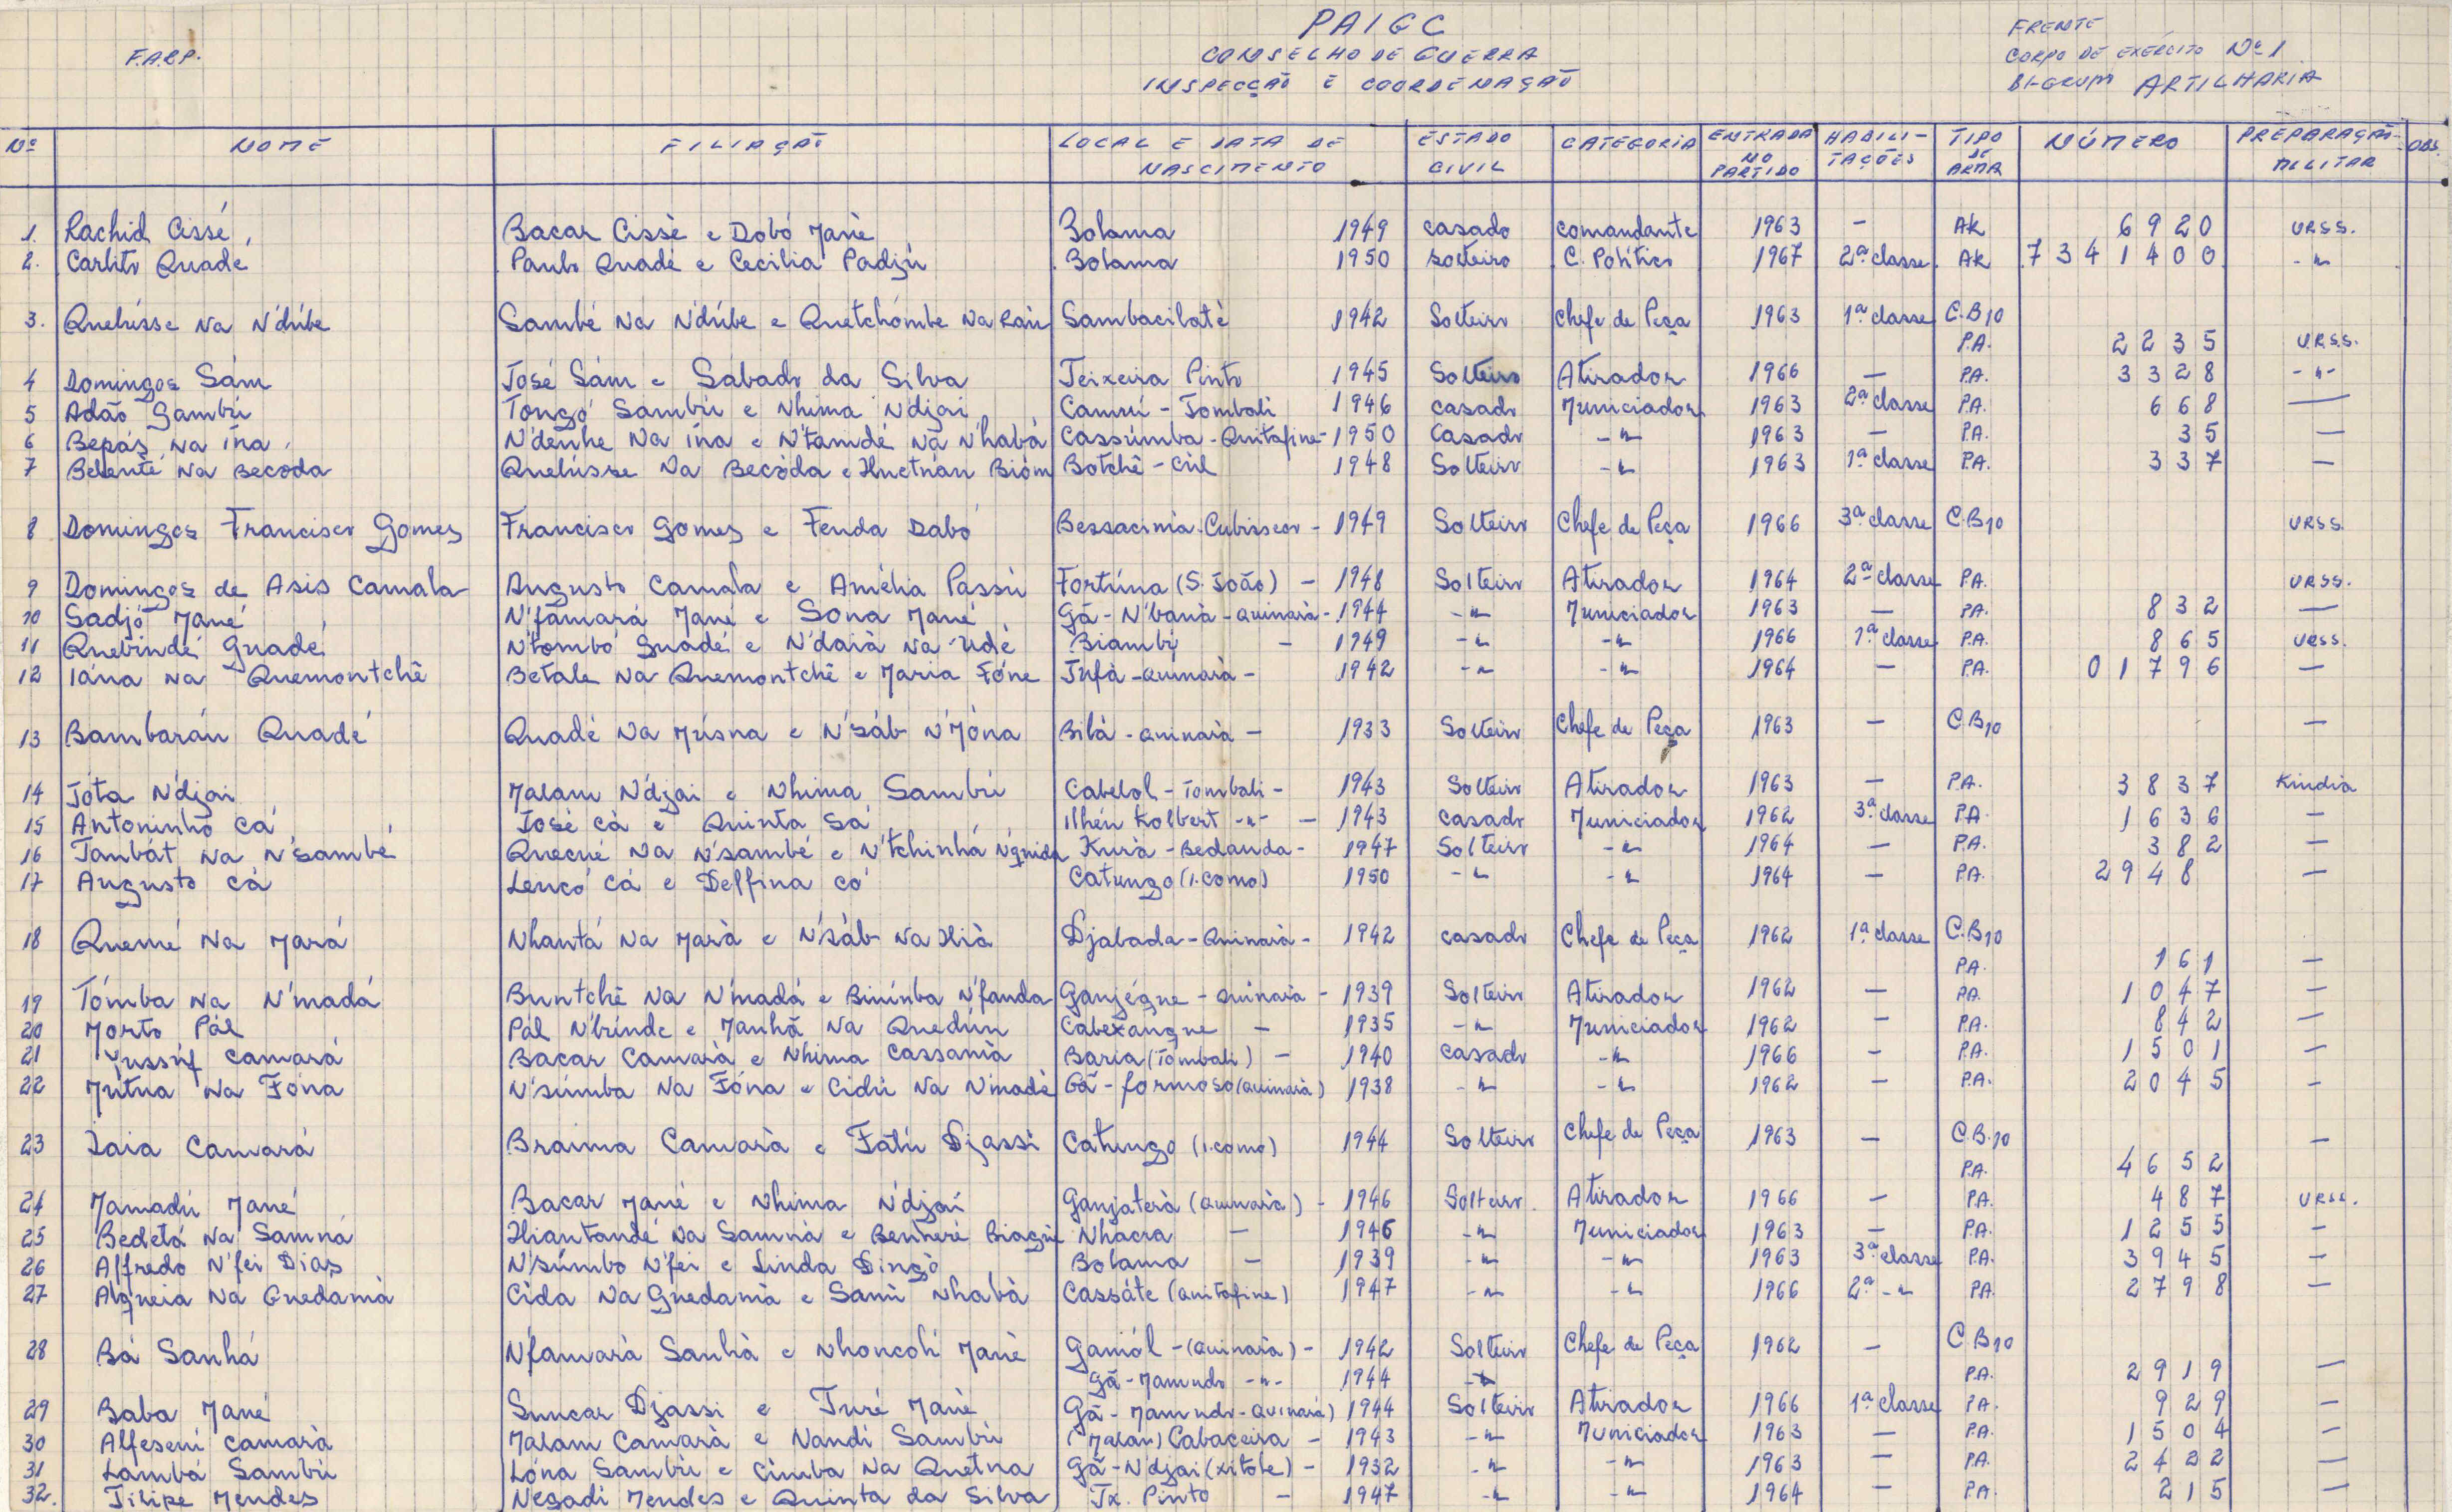 F.A.R.P.
PAIGC
CONSELHO DE GUERRA
INSPECÇÃO E COORDENAÇÃO
FRENTE
CORPO DE EXÉRCITO Nº 1
BI-GRUPO ARTILHARIA
Nº NOME FILIAÇÃO LOCAL E DATA DE NASCIMENTO ESTADO CIVIL CATEGORIA ENTRADA NO PARTIDO HABILITAÇÕES TIPO DE ARMA NÚMERO PREPARAÇÃO MILITAR OBS.
1. Rachid Cissé Bacar Cissè e Dobó Manè Bolama 1949 casado comandante 1963 - AK 6920 URSS.
2. Carlito Quade Paulo Quadé e Cecilia Padjú Bolama 1950 solteiro C. Politico 1967 2ª classe AK 7341400 -"
3. Quebisse Na N'dúbe Sambé Na N'dúbe e Quetchómbe Na Raú Sambacilatè 1942 Solteiro Chefe de Peça 1963 1ª classe C.B10
P.A. 2235 U.R.S.S.
4 Domingos Sám José Sám e Sábado da Silva Teixeira Pinto 1945 Solteiro Atirador 1966 — P.A. 3328 -"-
5 Adão Sambú Tongó Sambú e Nhima N'djai Camuí - Tombali 1946 casado Municiador 1963 2ª classe P.A. 668 —
6 Bepás Na Ína N'denhe Na Ína e N'tamdé Na N'habá Cassúmba - Quitafine - 1950 Casado -" 1963 — P.A. 35 —
7 Belentè Na Becoda Quebisse Na Becóda e Bióm Botchê - Cúl 1948 Solteiro -" 1963 1ª classe P.A. 337 —
8 Domingos Francisco Gomes Francisco Gomes e Fenda Dabó Cubisseco - 1949 Solteiro Chefe de Peça 1966 3ª classe C.B10 URSS.
9 Domingos de Asis Camala Augusto Camala e Amélia Passú Fortúna (S. João) - 1948 Solteiro Atirador 1964 2ª classe P.A. URSS.
10 Sadjó Mané N'fámará Mané e Sona Mané Gã - N'baná - Quinara - 1944 -" Municiador 1963 — P.A. 832 —
11 Quebindé Quadé N'tombó Quadé e N'daià Na Udé Biambi - 1949 -" -" 1966 1ª classe P.A. 865 URSS.
12 Iána Na Quemontchê Betale Na Quemontchê e Maria Fóne Jufà - Quinara - 1942 -" -" 1964 - P.A. 01796 —
13 Bambarán Quadé Quadé Na Músna e N'sáb N'Móna Bilà - Quinara - 1933 Solteiro Chefe de Peça 1963 - C.B10 —
14 Jóta N'djai Malam N'djai e Nhima Sambú Cabelol - Tombali - 1943 Solteiro Atirador 1963 - P.A. 3837 Kindia
15 Antoninho Cá José Cà e Quinta Sá Ilhéu Kolbert -"- - 1943 casado Municiador 1962 3ª classe P.A. 1636 —
16 Tambát Na N'sambé Quecué Na N'sambé e N'tchinhá N'guida Kurà - Bedanda - 1947 Solteiro -" 1964 - P.A. 382 —
17 Augusto Cá Lencó Cá e Delfina Có Catungo (I. Como) 1950 -" -" 1964 - P.A. 2948 —
18 Quemé Na Mará Nhantá Na Marà e N'sáb Na Djabada - Quinara - 1942 casado Chefe de Peça 1962 1ª classe C.B10
P.A. 161 —
19 Tómba Na N'madá Buntchê Na N'madá e Binínba N'fanda Ganjégue - Quinara - 1939 Solteiro Atirador 1962 - P.A. 1047 —
20 Morto Pál Pál N'búnde e Manhã Na Quedún Cabexangue - 1935 -" Municiador 1962 - P.A. 842 —
21 Yussúf Camará Bacar Camarà e Nhima Cassamà Baria (Tombali) - 1940 casado -" 1966 - P.A. 1501 —
22 Mútna Na Fóna N'súmba Na Fóna e Cidú Na N'madè Gã-formoso (Quinara) 1938 -" -" 1962 - P.A. 2045 —
23 Iaia Camará Braima Camarà e Fatú Djassi Catungo (I. Como) 1944 Solteiro Chefe de Peça 1963 - C.B.10 —
P.A. 4652
24 Mamadú Mané Bacar Mané e Nhima N'djaí Ganjaterà (Quinara) - 1946 Solteiro Atirador 1966 - P.A. 487 URSS.
25 Bedetá Na Samná Na Samnà e Benheré Biaguê Nhacra - 1946 -" Municiador 1963 - P.A. 1255 —
26 Alfredo N'fei Dias N'súmbo N'fei e Linda Dingò Bolama - 1939 -" -" 1963 3ª classe P.A. 3945 —
27 Algueia Na Guedamà Cida Na Guedamà e Samú Nhabà Cassáte (Quitafine) 1947 -" -" 1966 2ª -" P.A. 2798 —
28 Bá Sanhá N'famarà Sanhà e Nhoncoli Manè Gamól - (Quinara) - 1942 Solteiro Chefe de Peça 1962 - C.B10
Gã-Mamudo -"- 1944 -" P.A. 2919 —
29 Baba Mané Suncar Djassi e Turé Manè Gã - Mamudo - Quinara) 1944 Solteiro Atirador 1966 1ª classe P.A. 929 —
30 Alfeseni Camarà Malam Camarà e Nandi Sambú (Malan) Cabaceira - 1943 -" Municiador 1963 — P.A. 1504 —
31 Lambá Sambú Lóna Sambú e Címba Na Quetna Gã - N'djai (Xitole) - 1932 -" -" 1963 - P.A. 2422 —
32. Filipe Mendes Negadi Mendes e Quinta da Silva Tx. Pinto - 1947 -" -" 1964 - P.A. 215 —